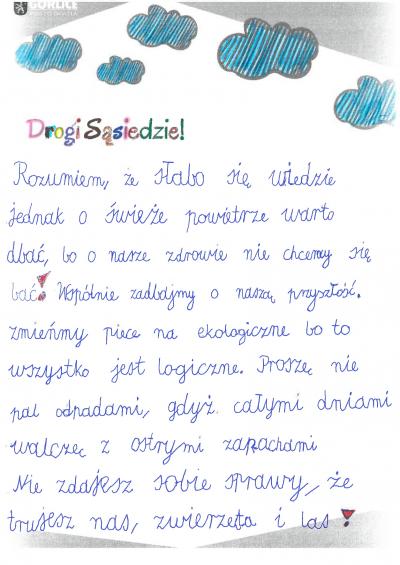 GORLICE
Drogi Sąsiedzie!
Rozumiem, że słabo się wiedzie
jednak o świeże powietrze warto
dbać, bo o nasze zdrowie nie chcemy się
bać! Wspólnie zadbajmy o naszą przyszłość.
zmieńmy piece na ekologiczne bo to
wszystko jest logiczne. Proszę nie
pal odpadami, gdyż całymi dniami
walczę z ostrymi zapachami
Nie zdajesz sobie sprawy, że
trujesz nas, zwierzęta i las!